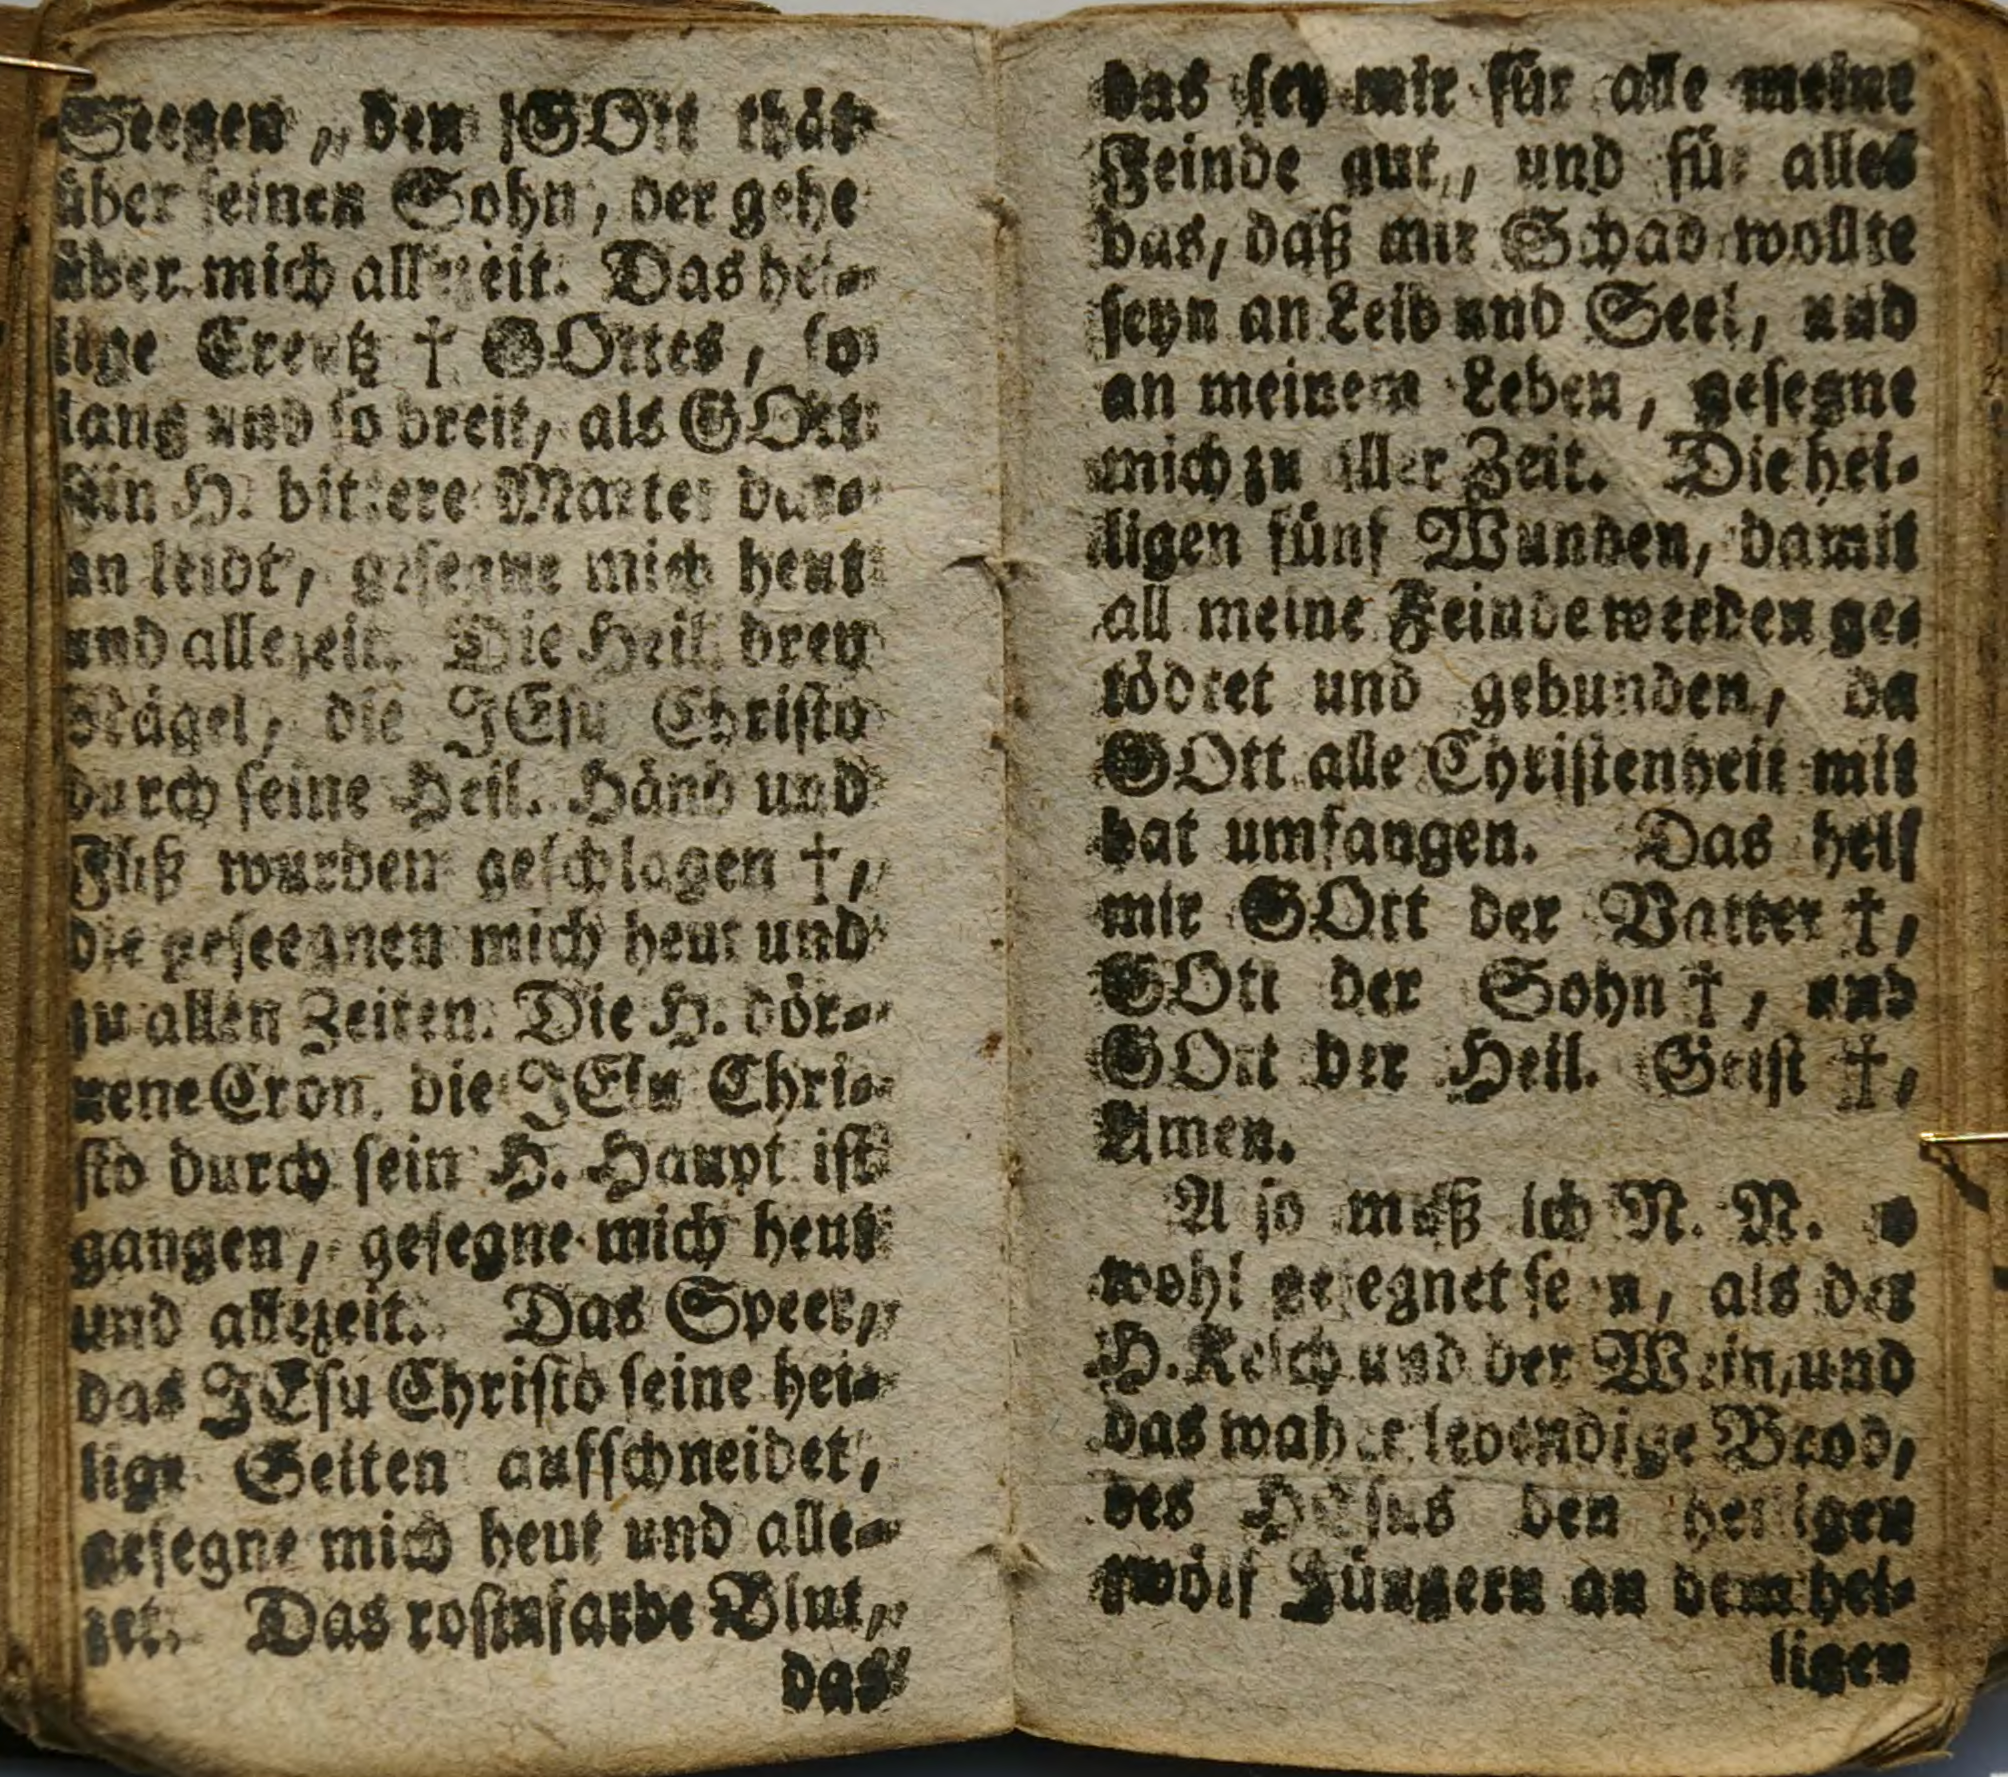 Seegen, den GOtt thät
über seinen Sohn, der gehe
über mich allezeit. Das hei-
lige Creutz † GOttes, so
lang und so breit, als GOtt
sein H. bittere Marter dar-
an leidt, gesegne mich heut
und allezeit. Die Heil. drey
Nägel, die JEsu Christo
durch seine Heil. Händ und
Füß wurden geschlagen †,
die geseegnen mich heut und
zu allen Zeiten. Die H. dör-
nene Cron, die JEsu Chri-
sto durch sein H. Haupt ist
gangen, gesegne mich heut
und allezeit. Das Speer,
das JEsu Christo seine hei-
lige Seiten aufschneidet,
gesegne mich heut und alle-
zeit. Das rosinfarbe Blut,
das
das sey mir für alle meine
Feinde gut, und für alles
das, daß mir Schad wollte
seyn an Leib und Seel, und
an meinem Leben, gesegne
mich zu aller Zeit. Die hei-
ligen fünf Wunden, damit
all meine Feinde werden ge-
tödtet und gebunden, da
GOtt alle Christenheit mit
hat umfangen. Das helf
mir GOtt der Vatter †,
GOtt der Sohn †, und
GOtt der Heil. Geist †,
Amen.
Also muß ich N. N. so
wohl gesegnet seyn, als der
H. Kelch und der Wein, und
das wahre lebendige Brod,
des JEsus den heiligen
zwölf Jüngern an dem hei-
ligen